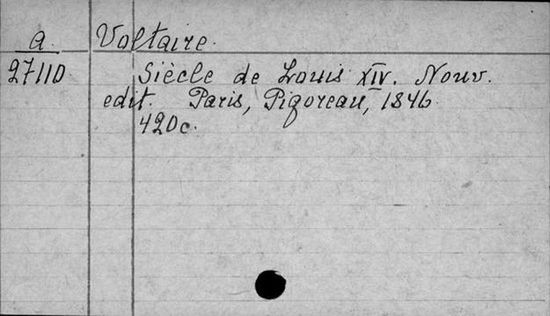 a Voltaire.
27110 Siècle de Louis XIV. Nouv.
edit. Paris, Pigoreau, 1846.
420c.